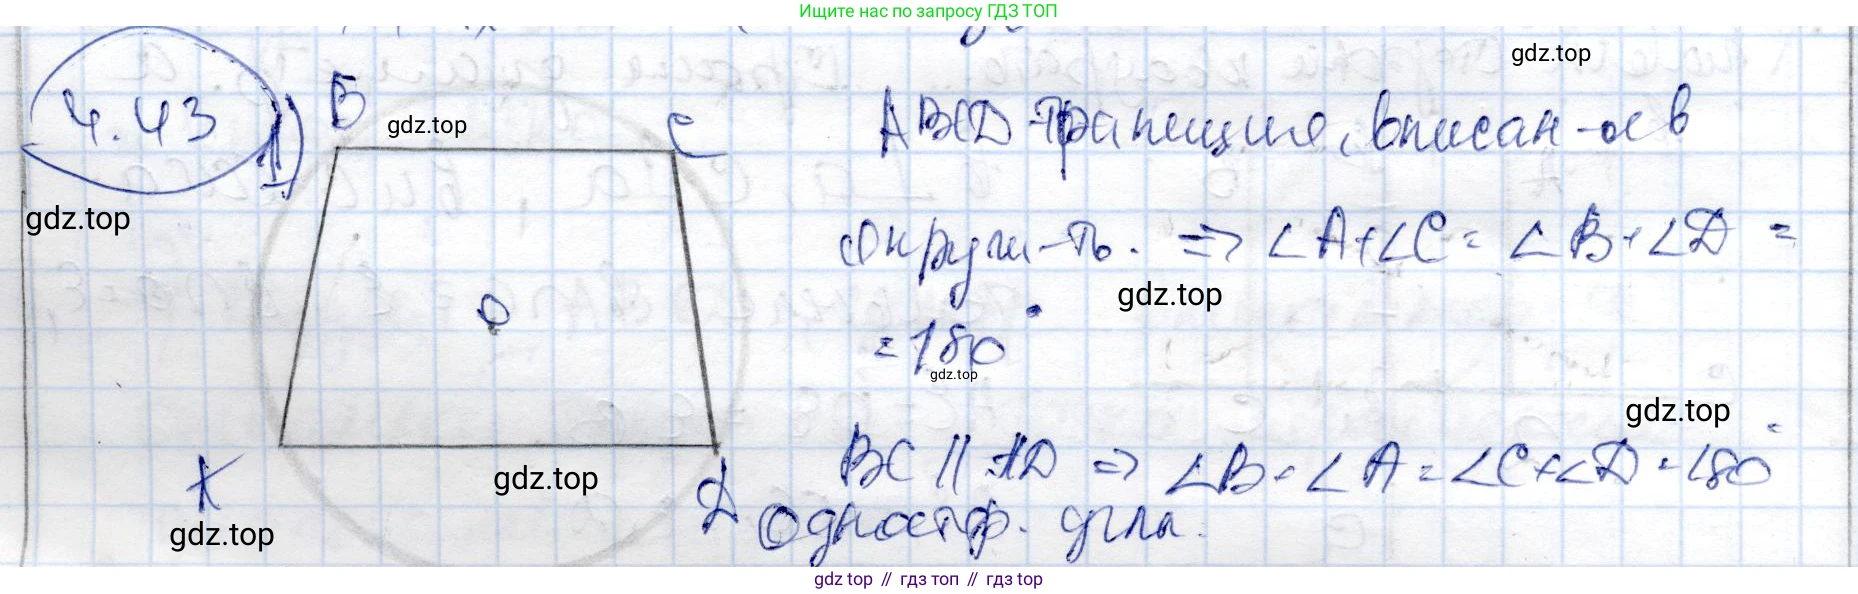 Ищите нас по запросу ГДЗ ТОП
gdz.top
4.43 1) B C
gdz.top
ABCD трапеция, вписан-ая в
gdz.top
окруж-ть. => ∠A+∠C = ∠B+∠D =
gdz.top
O
= 180°
gdz.top
gdz.top
BC || AD => ∠B+∠A = ∠C+∠D = 180°
gdz.top
A D
одностор. углы.
gdz.top
gdz top // гдз топ // гдз top